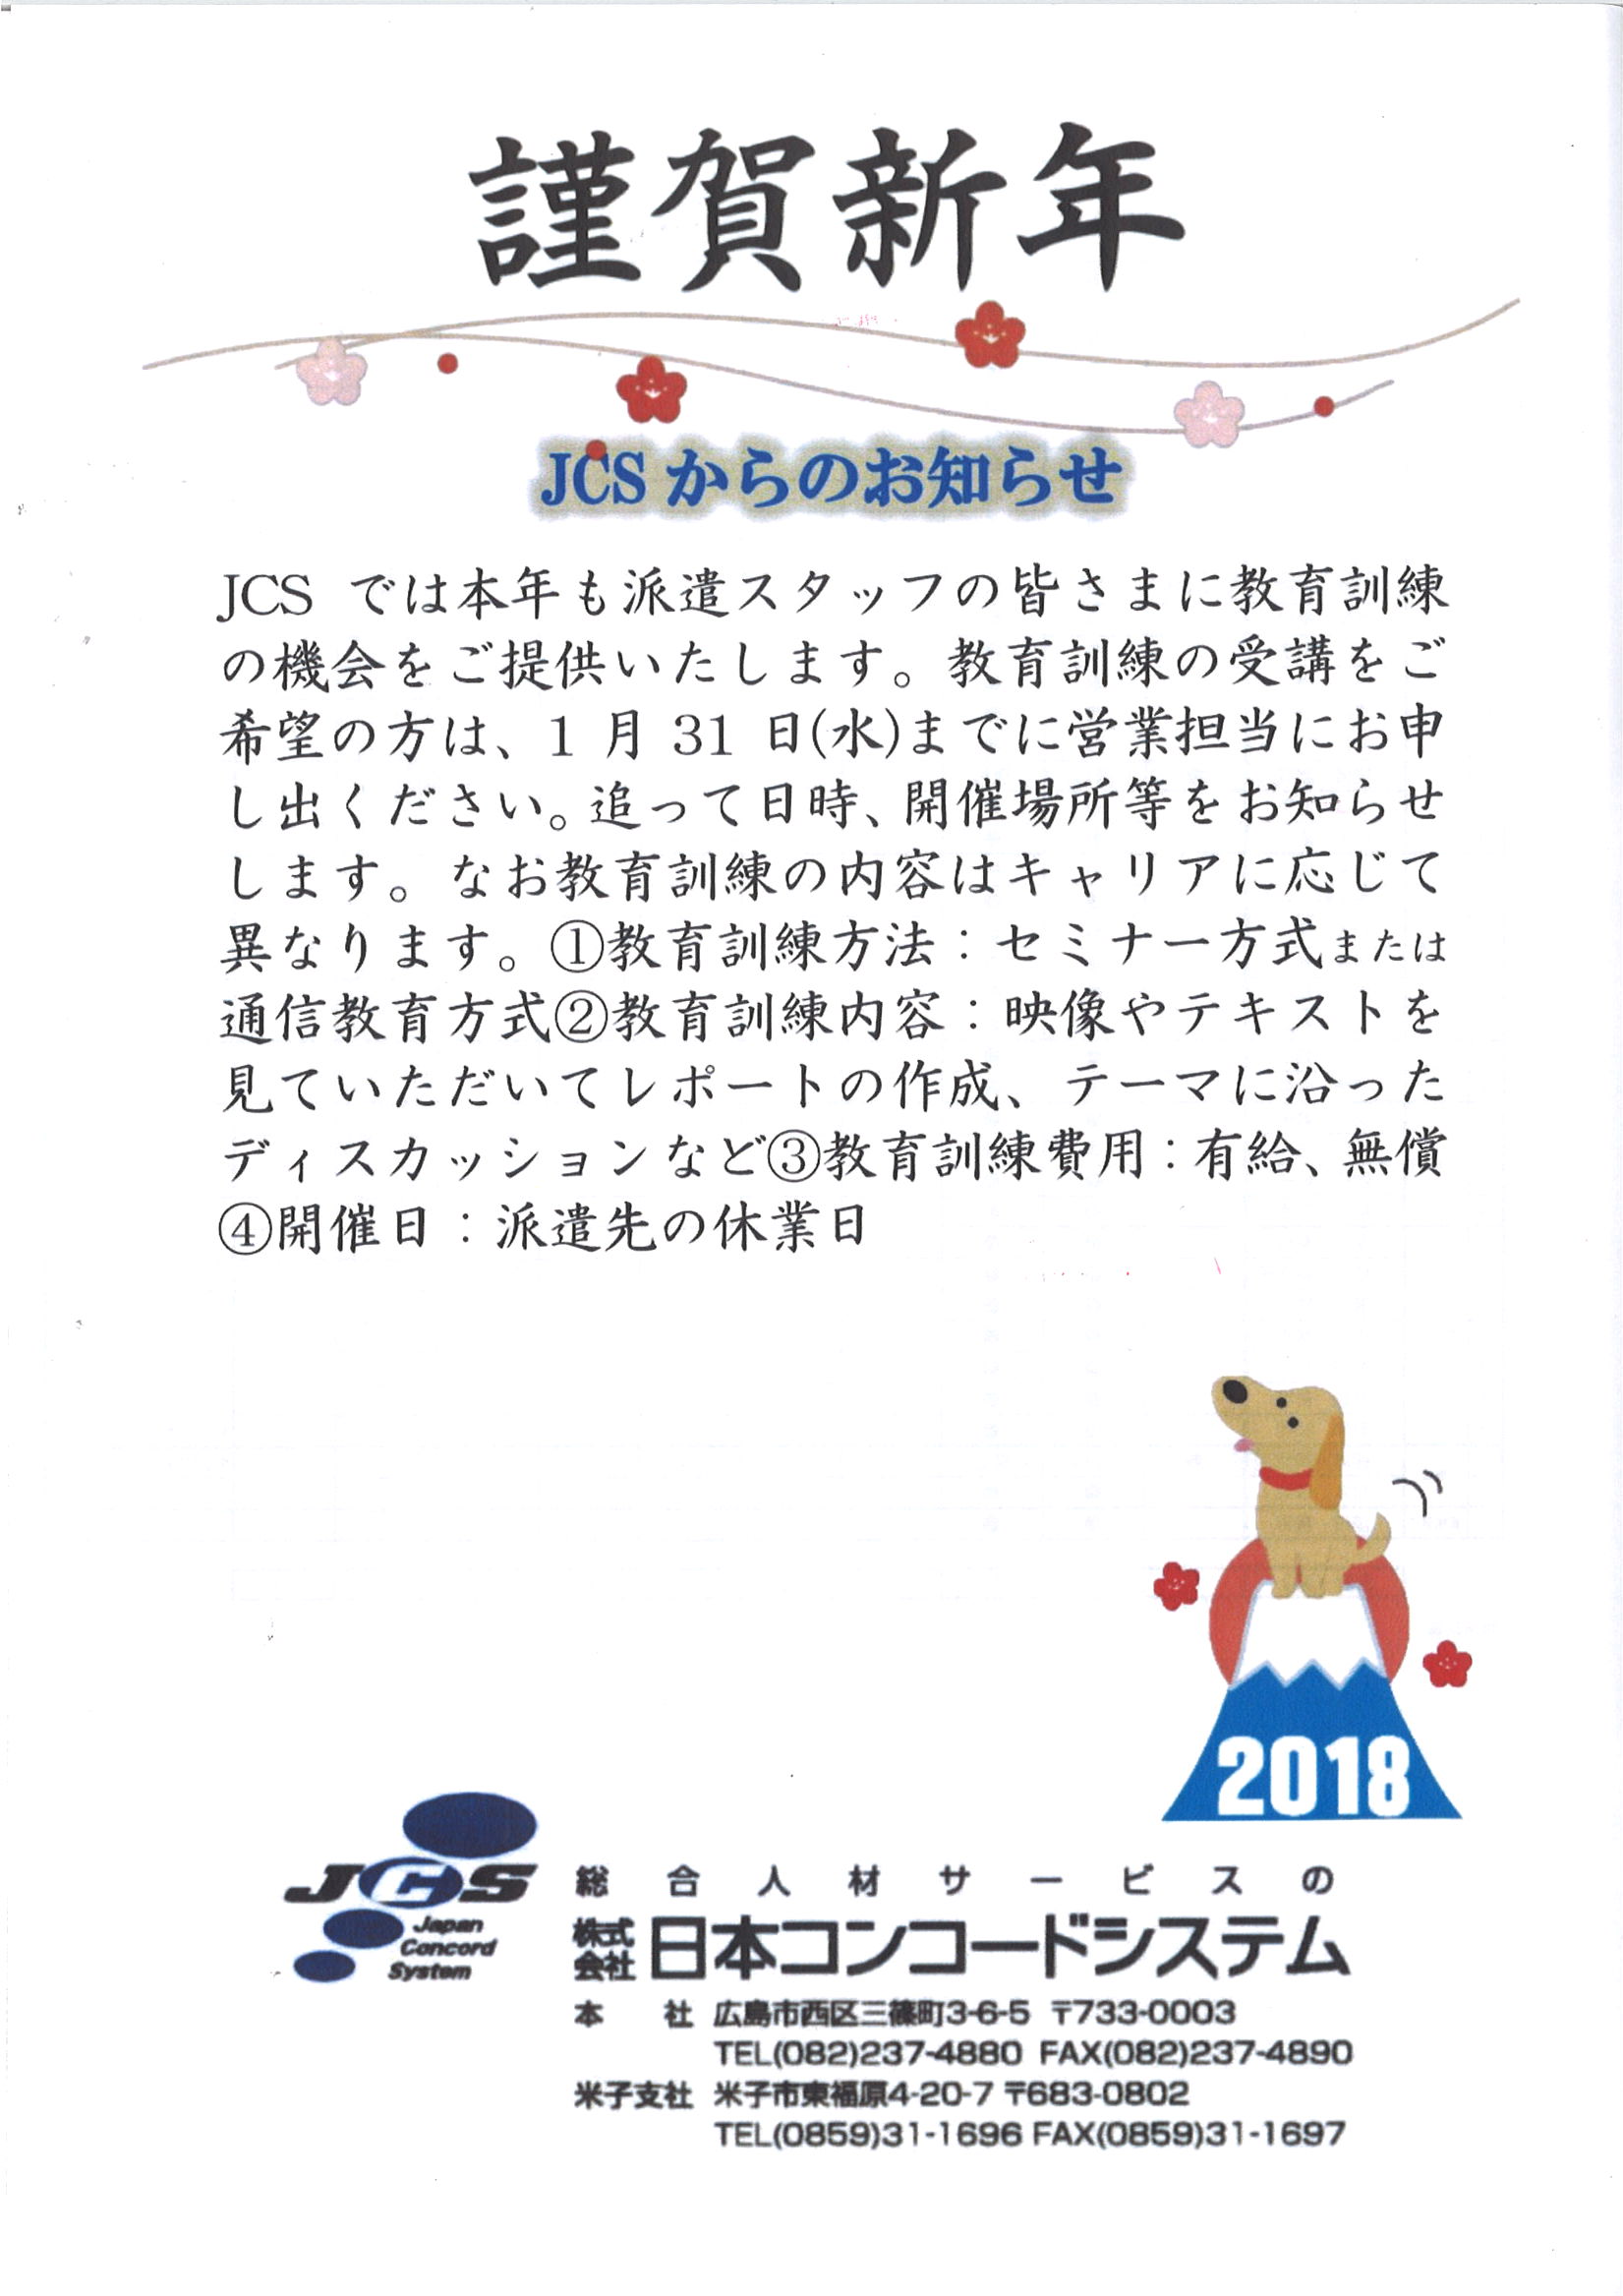 謹賀新年
JCSからのお知らせ
JCS では本年も派遣スタッフの皆さまに教育訓練
の機会をご提供いたします。教育訓練の受講をご
希望の方は、1 月 31 日(水)までに営業担当にお申
し出ください。追って日時、開催場所等をお知らせ
します。なお教育訓練の内容はキャリアに応じて
異なります。①教育訓練方法：セミナー方式または
通信教育方式②教育訓練内容：映像やテキストを
見ていただいてレポートの作成、テーマに沿った
ディスカッションなど③教育訓練費用：有給、無償
④開催日：派遣先の休業日
2018
JCS
Japan
Concord
System
総合人材サービスの
株式会社 日本コンコードシステム
本 社 広島市西区三篠町3-6-5 〒733-0003
TEL(082)237-4880 FAX(082)237-4890
米子支社 米子市東福原4-20-7 〒683-0802
TEL(0859)31-1696 FAX(0859)31-1697